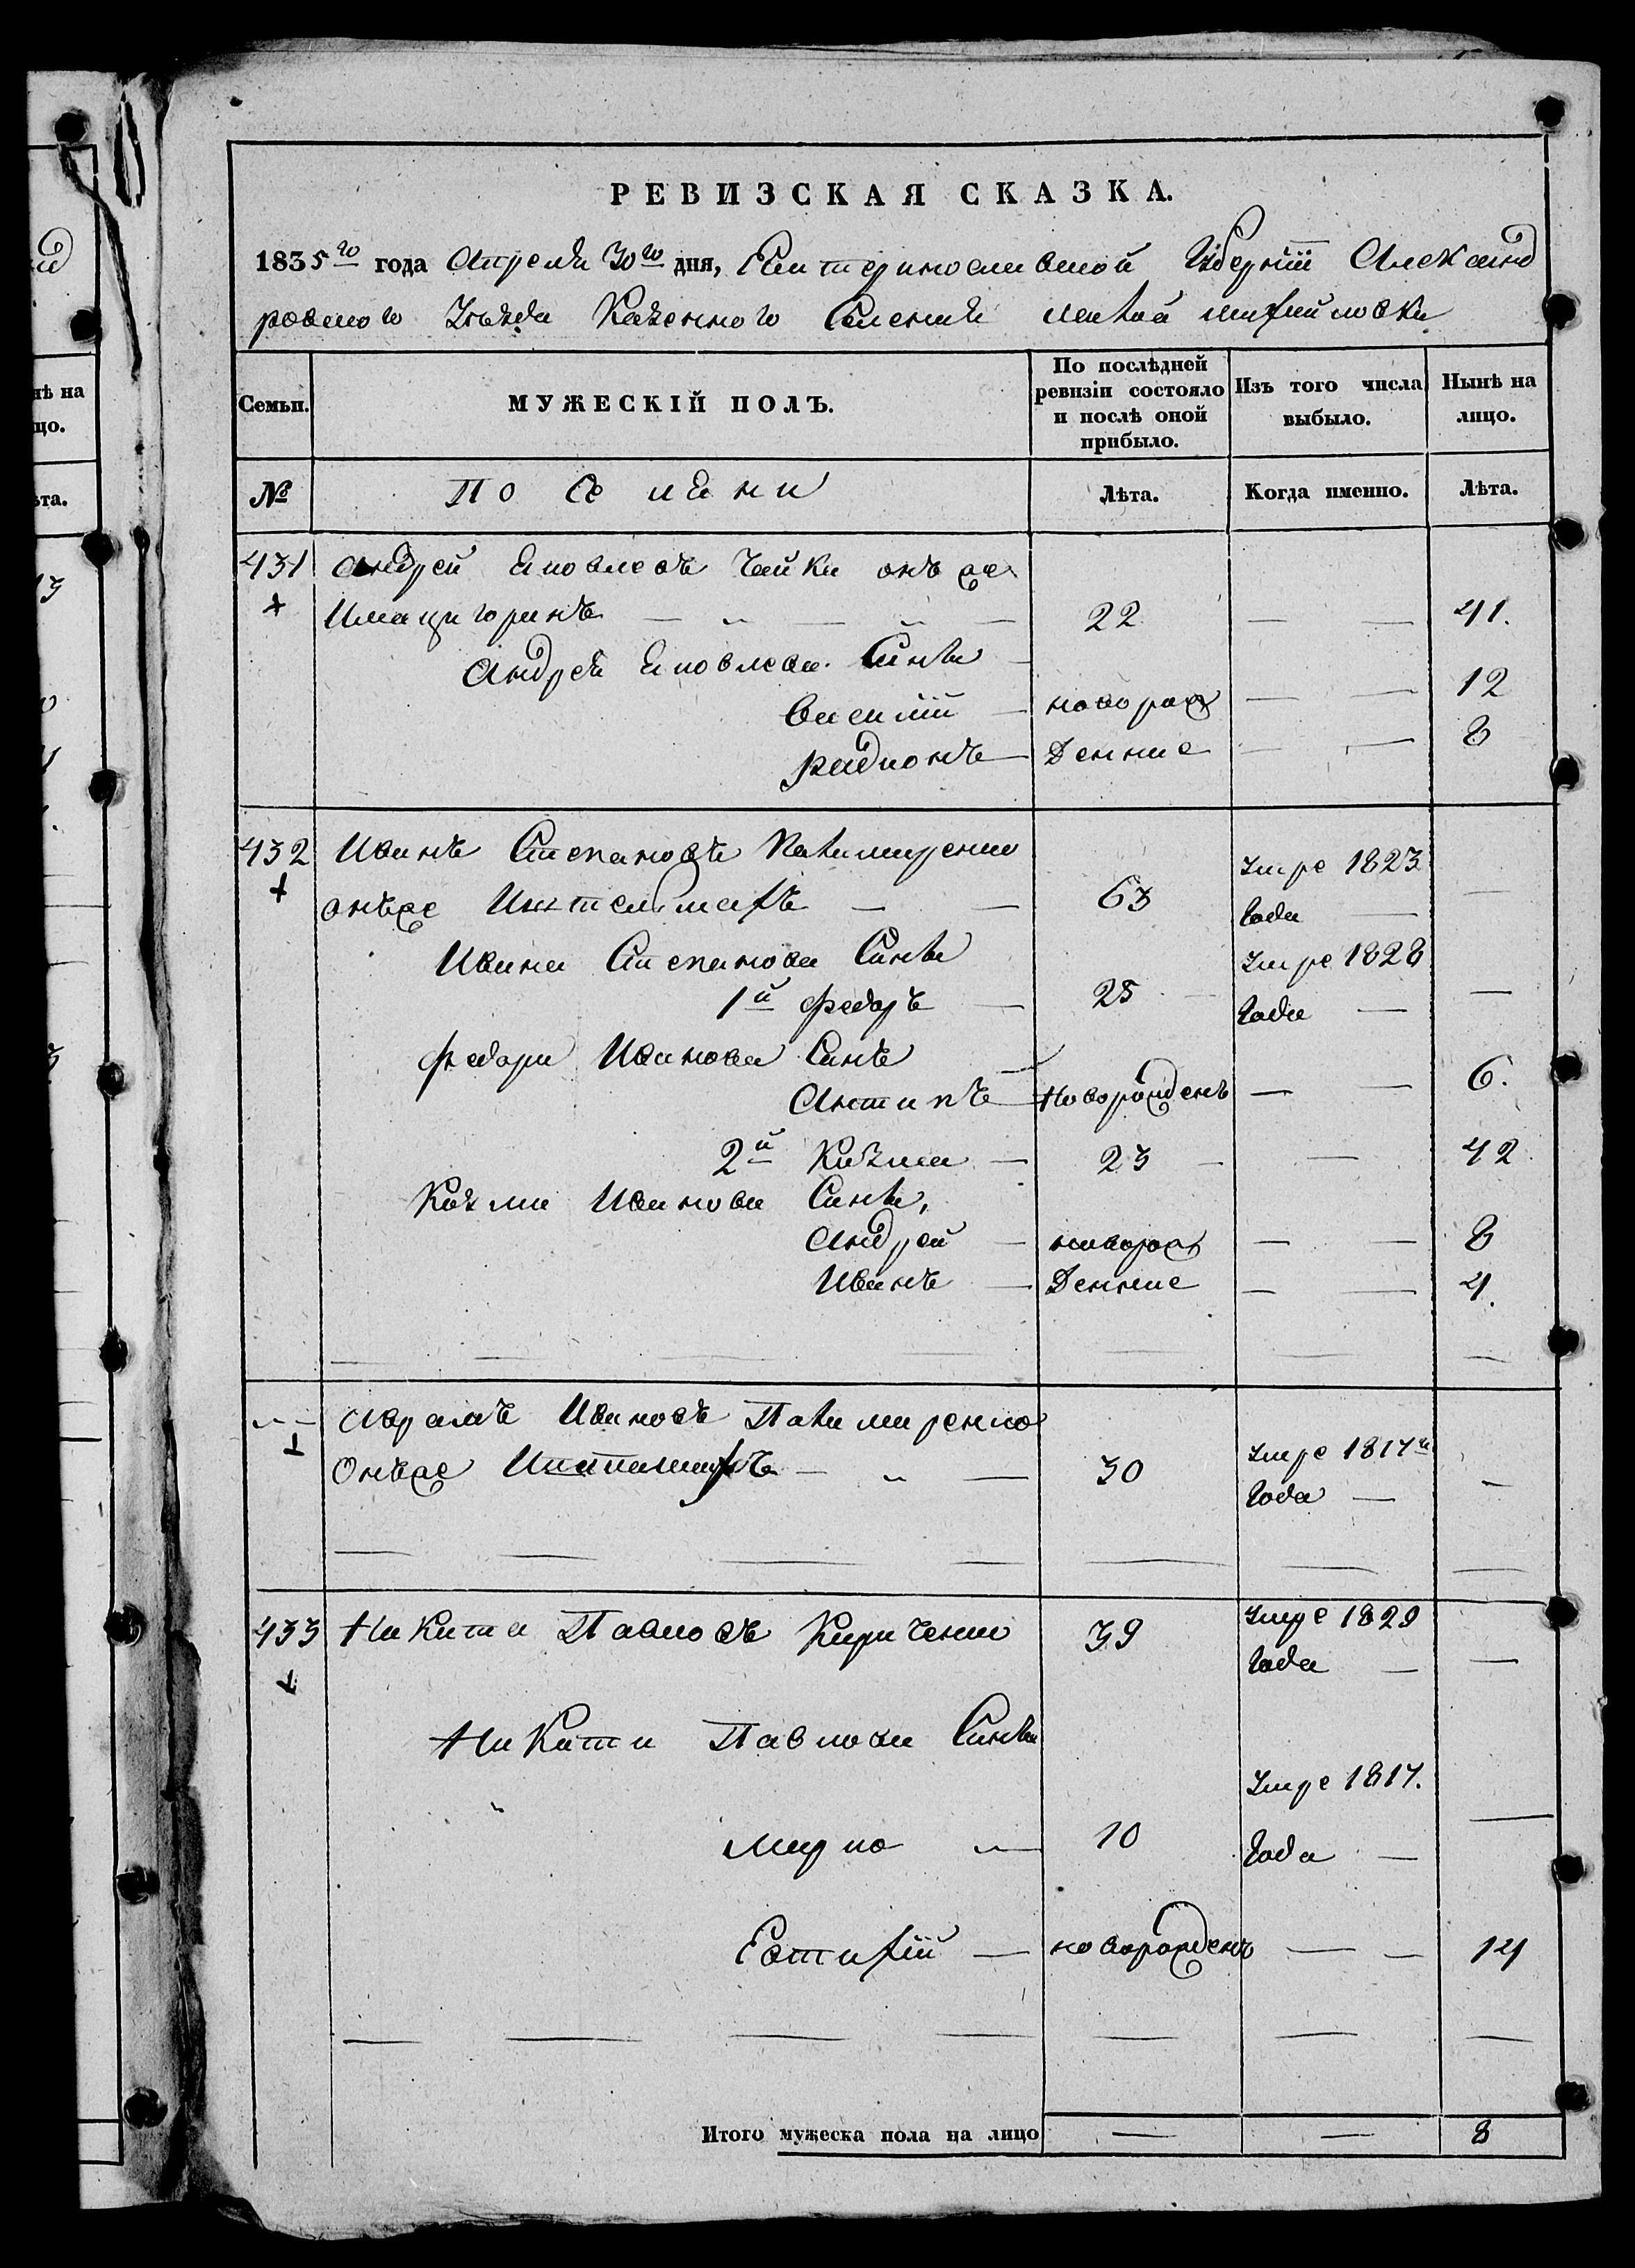 РЕВИЗСКАЯ СКАЗКА.
1835го года Апреля 30го дня, Екатеринославской Губерніи Александ
ровского Уѣзда Казенного Селения малой михайловки
Семьи.
МУЖЕСКІЙ ПОЛЪ.
По послѣдней ревизіи состояло и послѣ оной прибыло.
Изъ того числа выбыло.
Нынѣ на лицо.
№
Поселяни
Лѣта.
Когда именно.
Лѣта.
431 Андрей Яковлевъ Чайка онъ же
22 — — 41.
Андрея Яковлева Сины
Василій — новорож — — 12
Радионъ — Денние — — 8
432 Иванъ Степановъ
онъже — — 63 Умре 1823 года — —
Ивана Степанова Сины
1й Федоръ — 25 Умре 1828 года — —
Федора Иванова Синъ
Антипъ — Новорожденъ — — 6.
2й Козма — 23 — — 42
Козми Иванова Сины,
Андрей — новорож — — 8
Иванъ — Денние — — 4.
Аврамъ Ивановъ
Онъже — — 30 Умре 1817й года — —
433 Никита Павловъ Кириченко 39 Умре 1829 года — —
Никити Павлова Сины
Марко — 10 Умре 1817. года — —
Евтифій — новорожденъ — — 14
Итого мужеска пола на лицо — — 8
нѣ на
цо.
ѣта.